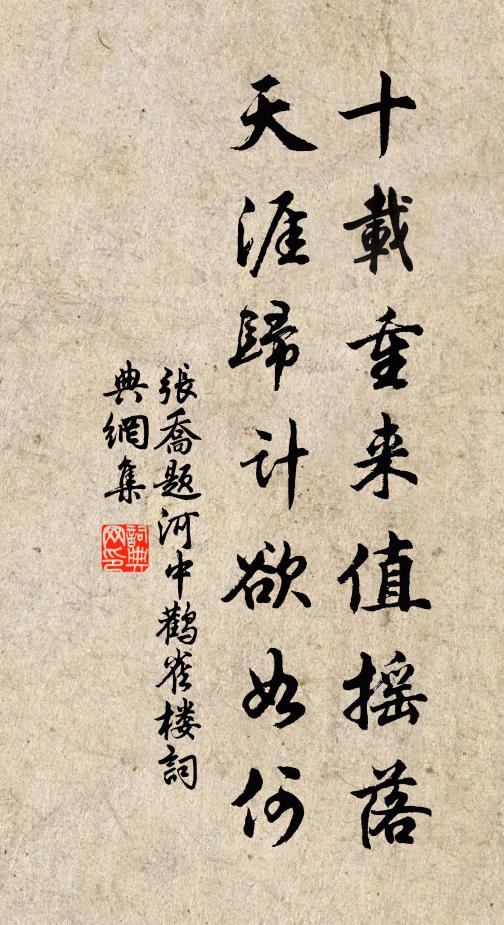 十載重来值摇落
天涯歸計欲如何
張喬題河中鸛雀楼詞
典網集
詞典
网印